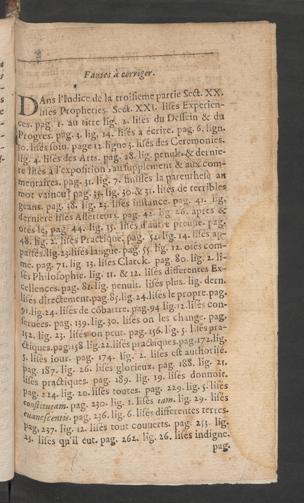 Fautes à corriger.
DAns l'Indice de la troisieme partie Sect. XX.
lisés Propheties. Sect. XXI. lisés Experien-
ces. pag. 1. au titre lig. 2. lisés du Dessein & du
Progres. pag. 3. lig. 14. lisés a écrite. pag. 6. lign.
10. lisés soin. page 13 ligne 5. lisés des Ceremonies.
lig. 4. lisés des Arts. pag. 28. lig. penult. & dernie-
re lisés à l'exposition, au supplement & aux com-
mentaires. pag. 31. lig. 7. finisses la parenthese au
mot vaincu? pag. 35. lig. 30. & 31. lisés de terribles
geans. pag. 38. lig. 23. lisés instance. pag. 41. lig.
derniere lisés Asserteurs. pag. 42. lig. 26. aprés &
otés le, pag. 44. lig. 15. lisés d'autre preuve. pag.
48. lig. 2. lisés Practique. pag. 54. lig. 14. lisés
lig. 23. lisés langue. pag. 55. lig. 12. otés com-
me. pag. 71. lig. 13. lisés Clarck. pag. 80. lig. 2. li-
sés Philosophie. lig. 11. & 12. lisés differentes Ex-
cellences. pag. 81. lig. penult. lisés plus. lig. dern.
lisés directement. pag. 85. lig. 24. lisés le propre. pag.
91. lig. 24. lisés de cobattre. pag. 94 lig. 12. lisés con-
servées. pag. 139. lig. 30. lisés on les change. pag.
152. lig. 23. lisés on peut. pag. 156. lig. 5. lisés pra-
ctiques. pag. 158 lig. 22. lisés practiques. pag. 172. lig.
5. lisés jour. pag. 174. lig. 2. lisés est authorisé.
pag. 187. lig. 26. lisés glorieux. pag. 188. lig. 21.
lisés practiques. pag. 189. lig. 19. lisés donnoit.
pag. 224. lig. 20. lisés toutes. pag. 229. lig. 5. lisés
constitutam. pag. 230. lig. 1. lisés tam. lig. 29. lisés
evanescentis. pag. 236. lig. 6. lisés differentes terres.
pag. 237. lig. 12. lisés tout couverts. pag. 253. lig.
23. lisés qu'il eut. pag. 262. lig. 26. lisés indigne.
pag.